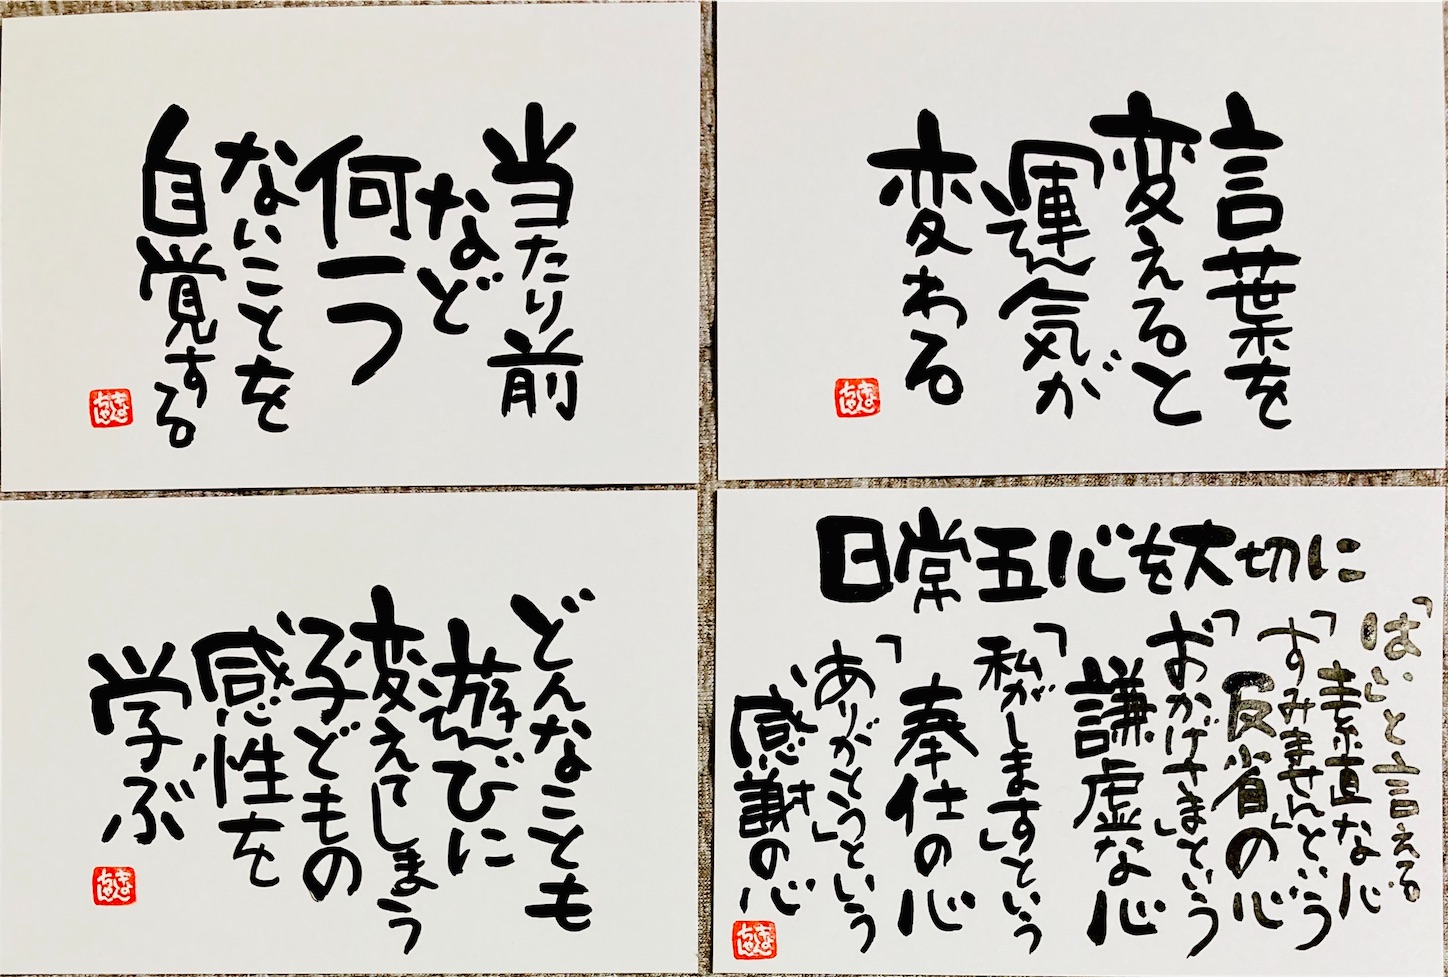 当たり前
など
何一つ
ないことを
自覚する
言葉を
変えると
運気が
変わる
どんなことも
遊びに
変えてしまう
子どもの
感性を
学ぶ
日常五心を大切に
「はい」と言える
素直な心
「すみません」という
反省の心
「おかげさま」という
謙虚な心
「私がします」という
奉仕の心
「ありがとう」という
感謝の心